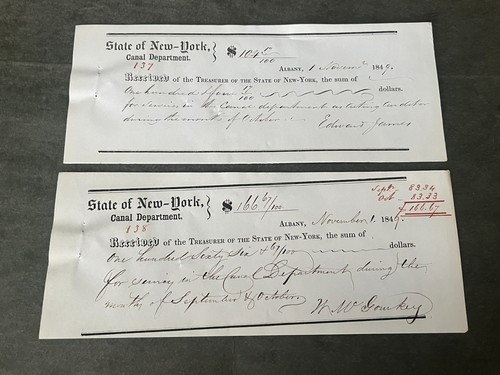 State of New-York,
Canal Department.
137
$ 104 17/100
Albany, 1 Novem 1849.
Received of the Treasurer of the State of New-York, the sum of
One hundred & four 17/100 dollars.
for services in the Canal department as acting Auditor
during the month of October
Edward James
State of New-York,
Canal Department.
138
$ 166 67/100
Sept. 83.34
Oct 83.33
$166.67
Albany, November 1. 1849.
Received of the Treasurer of the State of New-York, the sum of
One hundred Sixty Six & 67/100 dollars.
for services in the Canal Department during the
months of September & October
W. W.